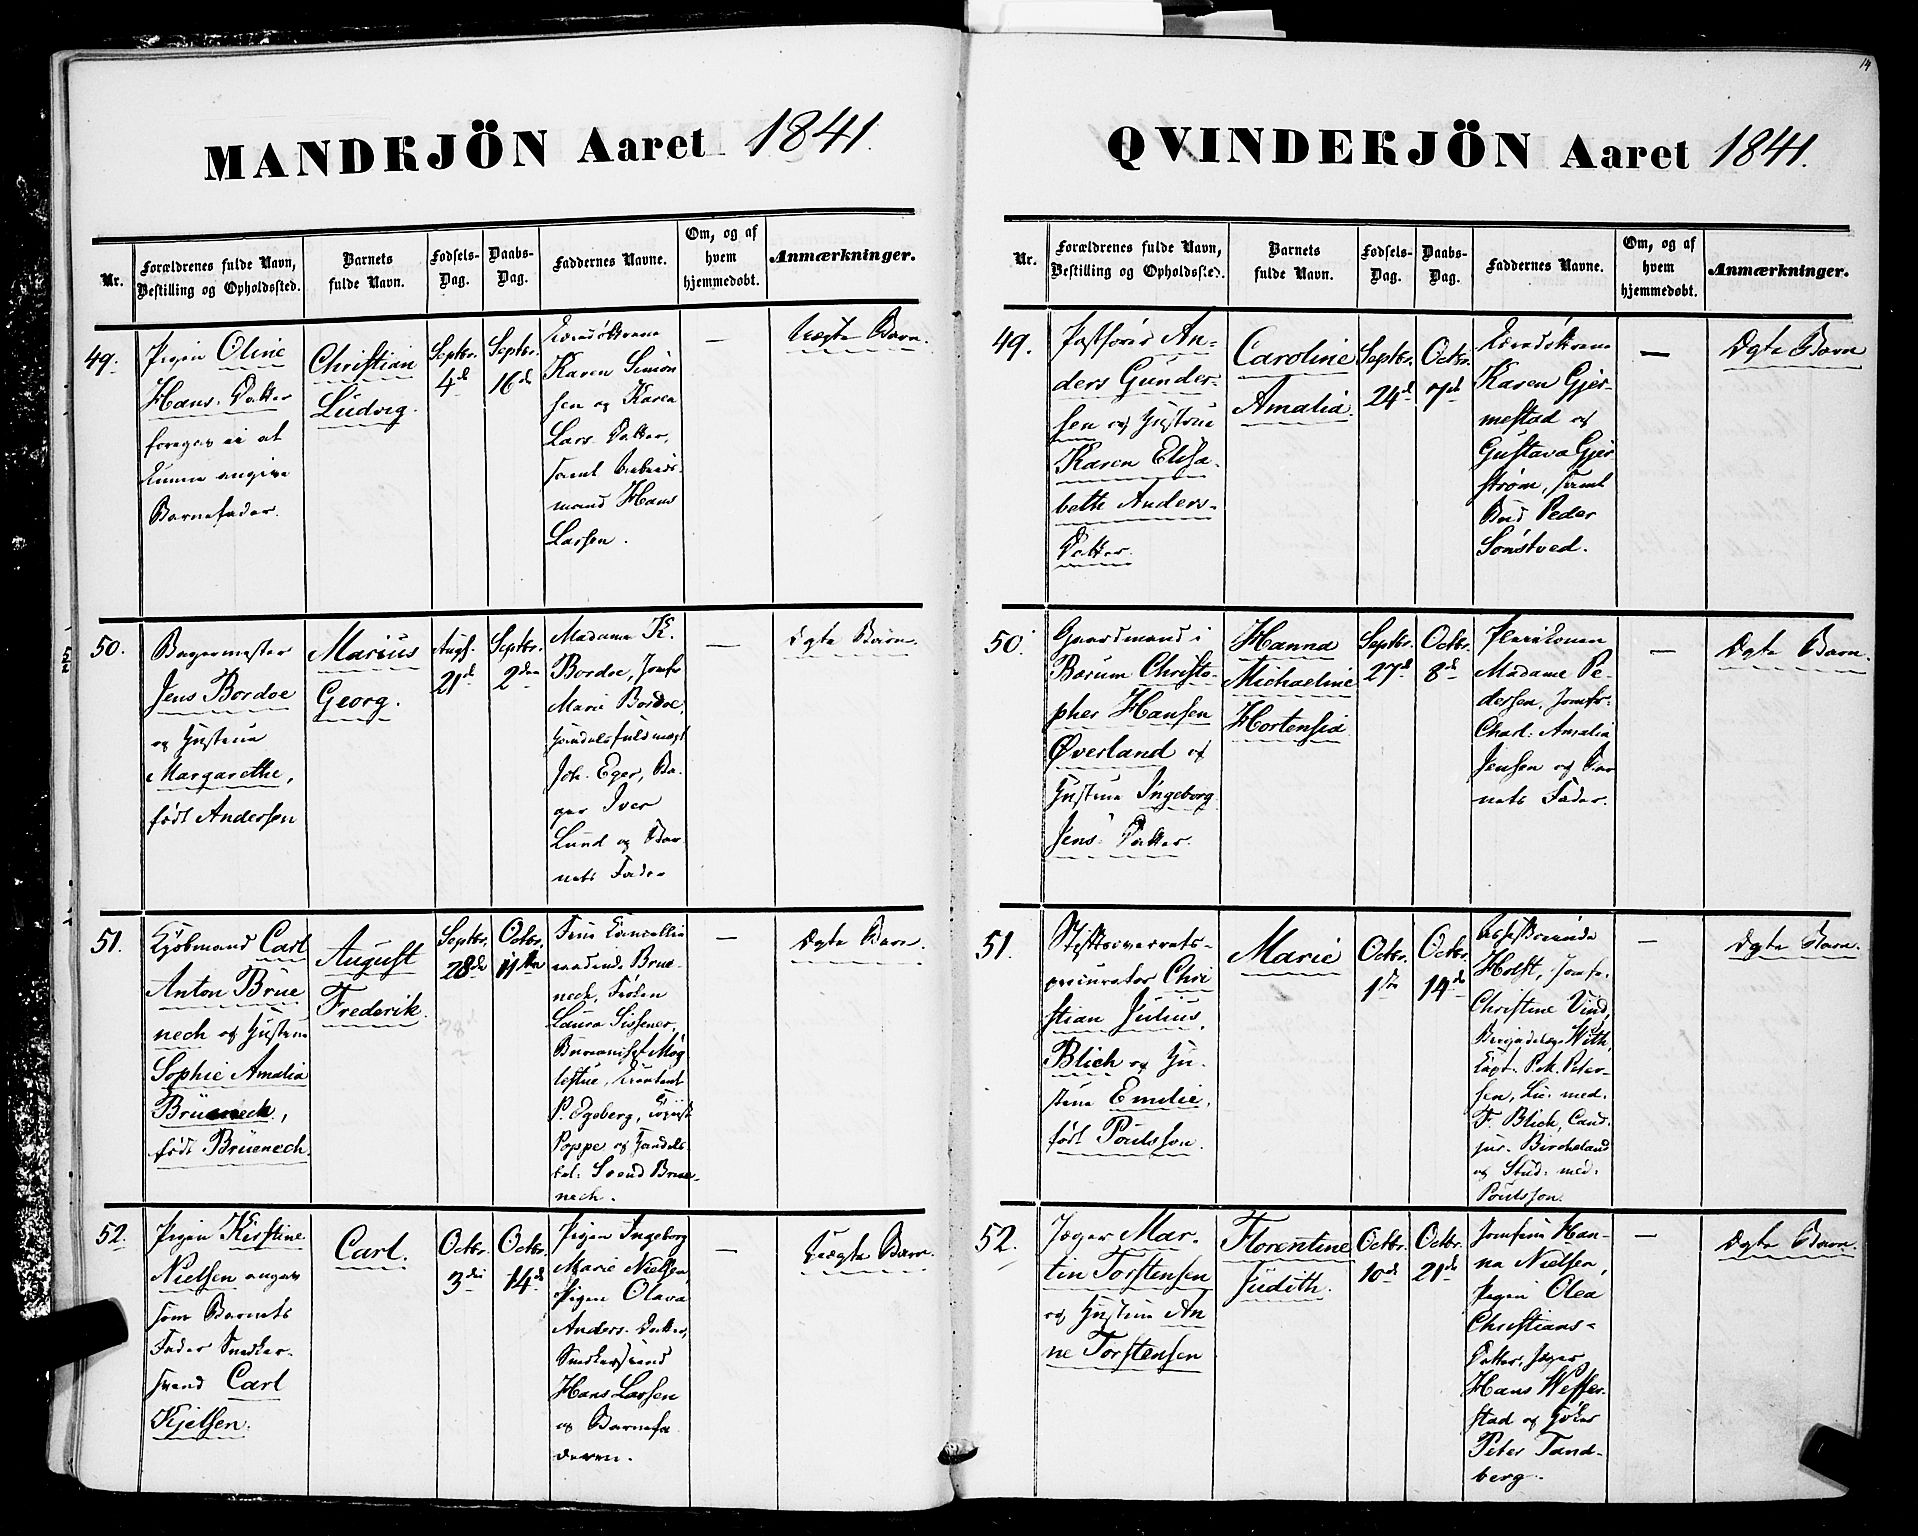 MANDKJÖN Aaret 1841.
Nr.
Forældrenes fulde Navn,
Bestilling og Opholdssted.
Barnets
fulde Navn.
Fødsels-
Dag.
Daabs-
Dag.
Faddernes Navne.
Om, og af
hvem
hjemmedøbt.
Anmærkninger.
49.
Pigen Oline
Hans-Datter
foregav ei at
kunne angive
Barnefader.
Christian
Ludvig.
Septbr.
4de
Septbr.
16de
Karen Simon
sen og Karen
Lars-Datter,
samt Arbeids-
mand Hans
Larsen.
—
Uægte Barn.
50.
Bagermester
Jens Bordoe
og Hustrue
Margarethe,
født Andersen
Marius
Georg.
Augs.
21de
Septbr.
2den
Madame K.
Bordoe, Jomfr
Marie Bordoe,
Handelsfuldmægt
Joh. Eger, Ba-
ger Iver
Lund og Bar
nets Fader
—
Ægte Barn.
51.
Kjøbmand Carl
Anton Brüe
nech og Hustrue
Sophie Amalia
Brüenech,
født Brüenech.
August
Frederik.
Septbr.
28de
Octbr.
11te
nech, Frøken
Laura Sissener,
P. Egeberg,
Poppe og Handels
Svend Brüe-
nech.
—
Ægte Barn.
52.
Pigen Kirstine
Nielsen angav
som Barnets
Fader Snedker-
svend Carl
Kjelsen.
Carl.
Octbr.
3die
Octbr.
14de
Pigen Ingeborg
Marie Nielsen,
Pigen Olava
Anders-Datter,
Snedkersvend
Hans Larsen
og Barnefa
deren.
—
Uægte Barn.
14
QVINDEKJÖN Aaret 1841.
Nr.
Forældrenes fulde Navn,
Bestilling og Opholdssted.
Barnets
fulde Navn.
Fødsels-
Dag.
Daabs-
Dag.
Faddernes Navne.
Om, og af
hvem
hjemmedøbt.
Anmærkninger.
49.
An-
ders Gunder-
sen og Hustrue
Karen Elisa-
beth Anders-
Datter.
Caroline
Amalia.
Septbr.
24de
Octbr.
7de
Karen Gjer
mestad og
Gustava Gjer
strøm, samt
Bud Peder
Sønstved.
—
Ægte Barn
50.
Gaardmand i
Bærum Christo-
pher Hansen
Øverland og
Hustrue Ingeborg
Jens-Datter.
Hanna
Michaeline
Hortensia
Septbr.
27de
Octbr.
8de
Madame Pe-
dersen, Jomfr.
Charl. Amalia
Jensen og Bar
nets Fader.
—
Ægte Barn.
51.
Stiftsoverrets-
procurator Chri
stian Julius
Blich og Hu-
strue Emilie,
født Poulsson.
Marie
Octbr.
1ste
Octbr.
14de
Holst, Jomfr.
Christine Vind,
With,
Capt. Pet. Peter-
sen, Lic. med.
F. Blich, Cand.
jur. Bircheland
og Stud. med.
Poulsson.
—
Ægte Barn.
52.
Jæger Mar-
tin Torstensen
og Hustrue An
ne Torstensen
Florentine
Judith.
Octbr.
10de
Octbr.
21de
Jomfru Han-
na Nielsen,
Pigen Olea
Christians-
Datter, Jæger
Hans Wesser
stad og Høker
Peter Tand-
berg.
—
Ægte Barn.